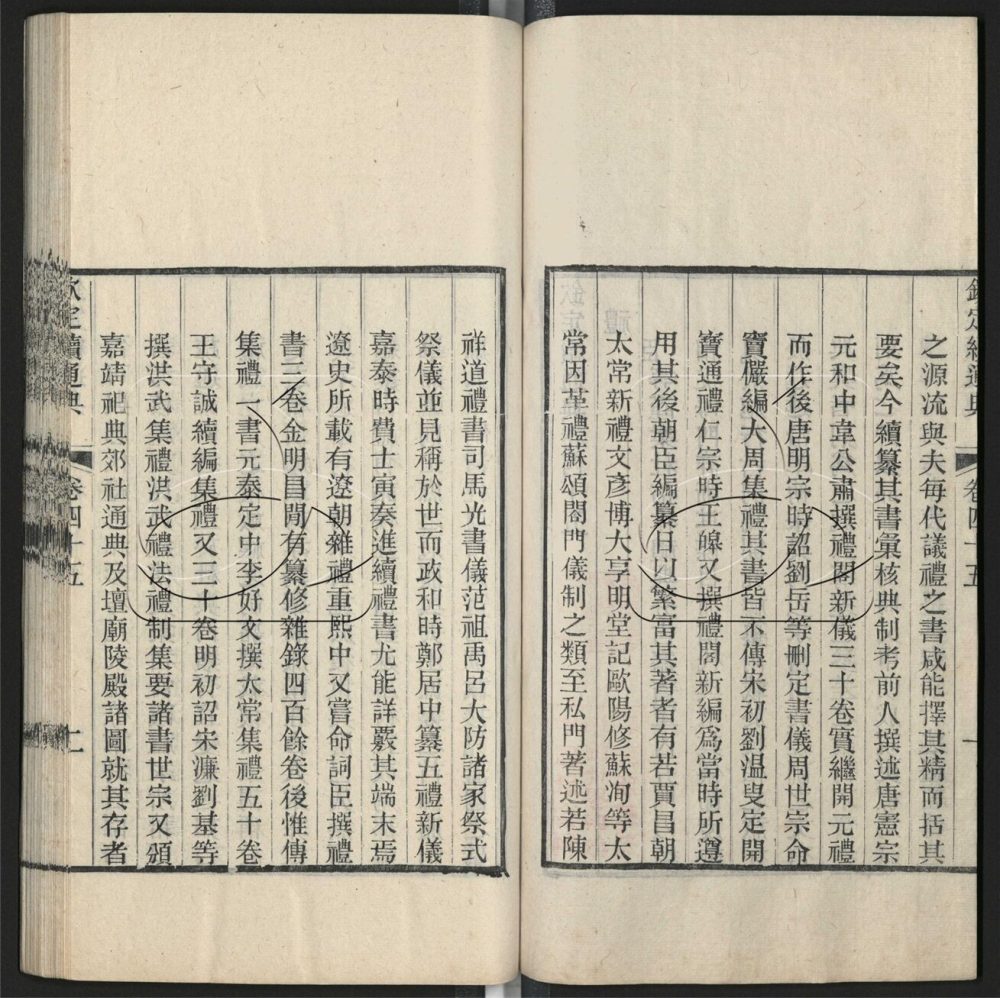 之源流與夫每代議禮之書咸能擇其精而括其
要矣今續纂其書彙核典制考前人撰述唐憲宗
元和中韋公肅撰禮閣新儀三十卷實繼開元禮
而作後唐明宗時詔劉岳等刪定書儀周世宗命
竇儼編大周集禮其書皆不傳宋初劉溫叟定開
寶通禮仁宗時王皞又撰禮閣新編爲當時所遵
用其後朝臣編纂日以繁富其著者有若賈昌朝
太常新禮文彥博大享明堂記歐陽修蘇洵等太
常因革禮蘇頌閤門儀制之類至私門著述若陳
祥道禮書司馬光書儀范祖禹呂大防諸家祭式
祭儀並見稱於世而政和時鄭居中纂五禮新儀
嘉泰時費士寅奏進續禮書尤能詳覈其端末焉
遼史所載有遼朝雜禮重熙中又嘗命詞臣撰禮
書三卷金明昌閒有纂修雜錄四百餘卷後惟傳
集禮一書元泰定中李好文撰太常集禮五十卷
王守誠續編集禮又三十卷明初詔宋濂劉基等
撰洪武集禮洪武禮法禮制集要諸書世宗又頒
嘉靖祀典郊社通典及壇廟陵殿諸圖就其存者
欽定續通典 卷四十五 二